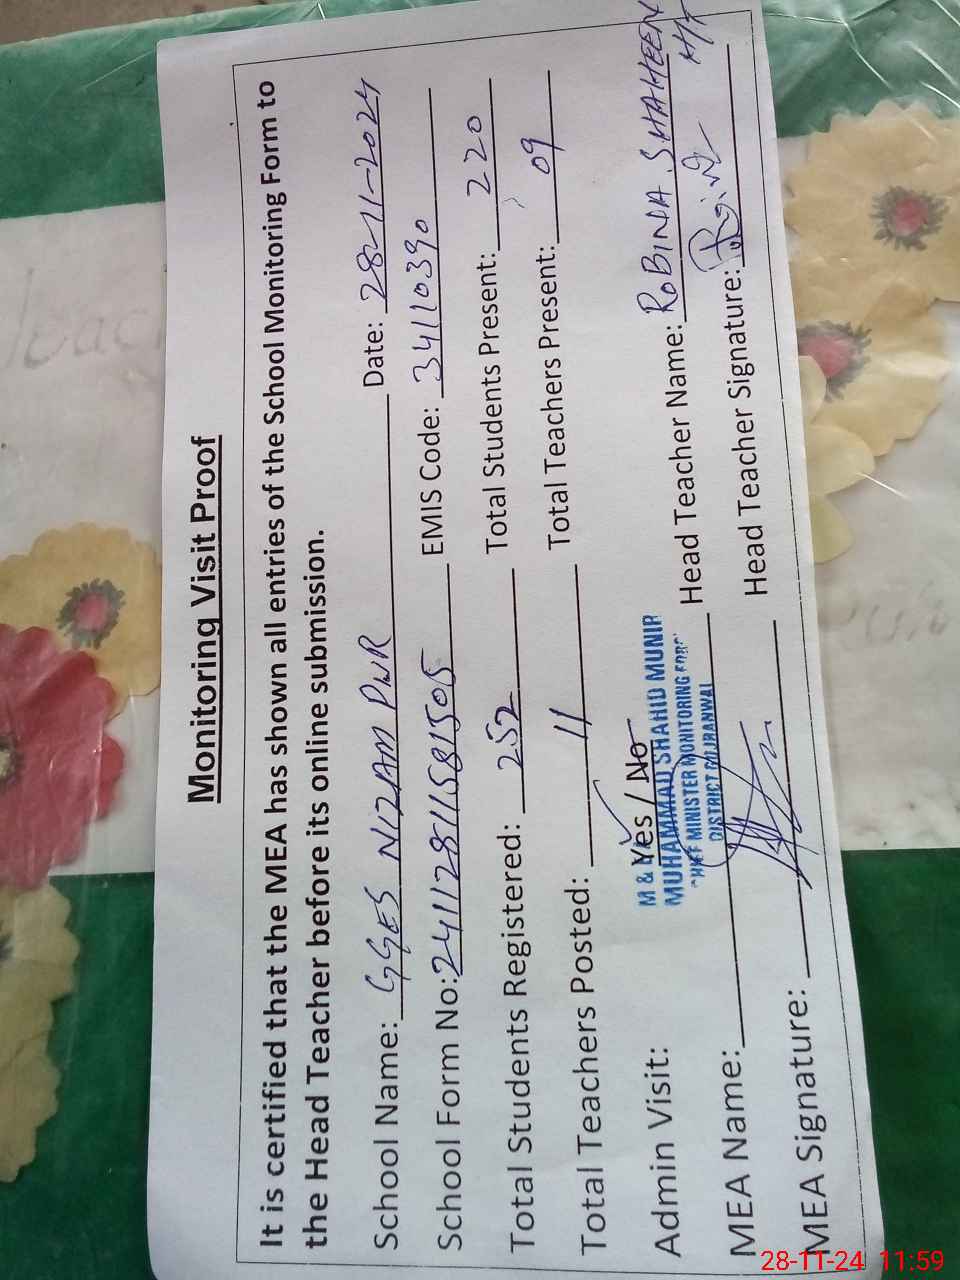 Monitoring Visit Proof
It is certified that the MEA has shown all entries of the School Monitoring Form to
the Head Teacher before its online submission.
School Name: GGES NIZAM PUR Date: 28-11-2024
School Form No: 241112811581505 EMIS Code: 34110390
Total Students Registered: 252 Total Students Present: 220
Total Teachers Posted: 11 Total Teachers Present: 09
Admin Visit: Yes / No
M &
MUHAMMAD SHAHID MUNIR
CHIEF MINISTER MONITORING FORC
DISTRICT GUJRANWAL
MEA Name: Head Teacher Name: ROBINA SHAHEEN
MEA Signature: Head Teacher Signature:
28-11-24 11:59